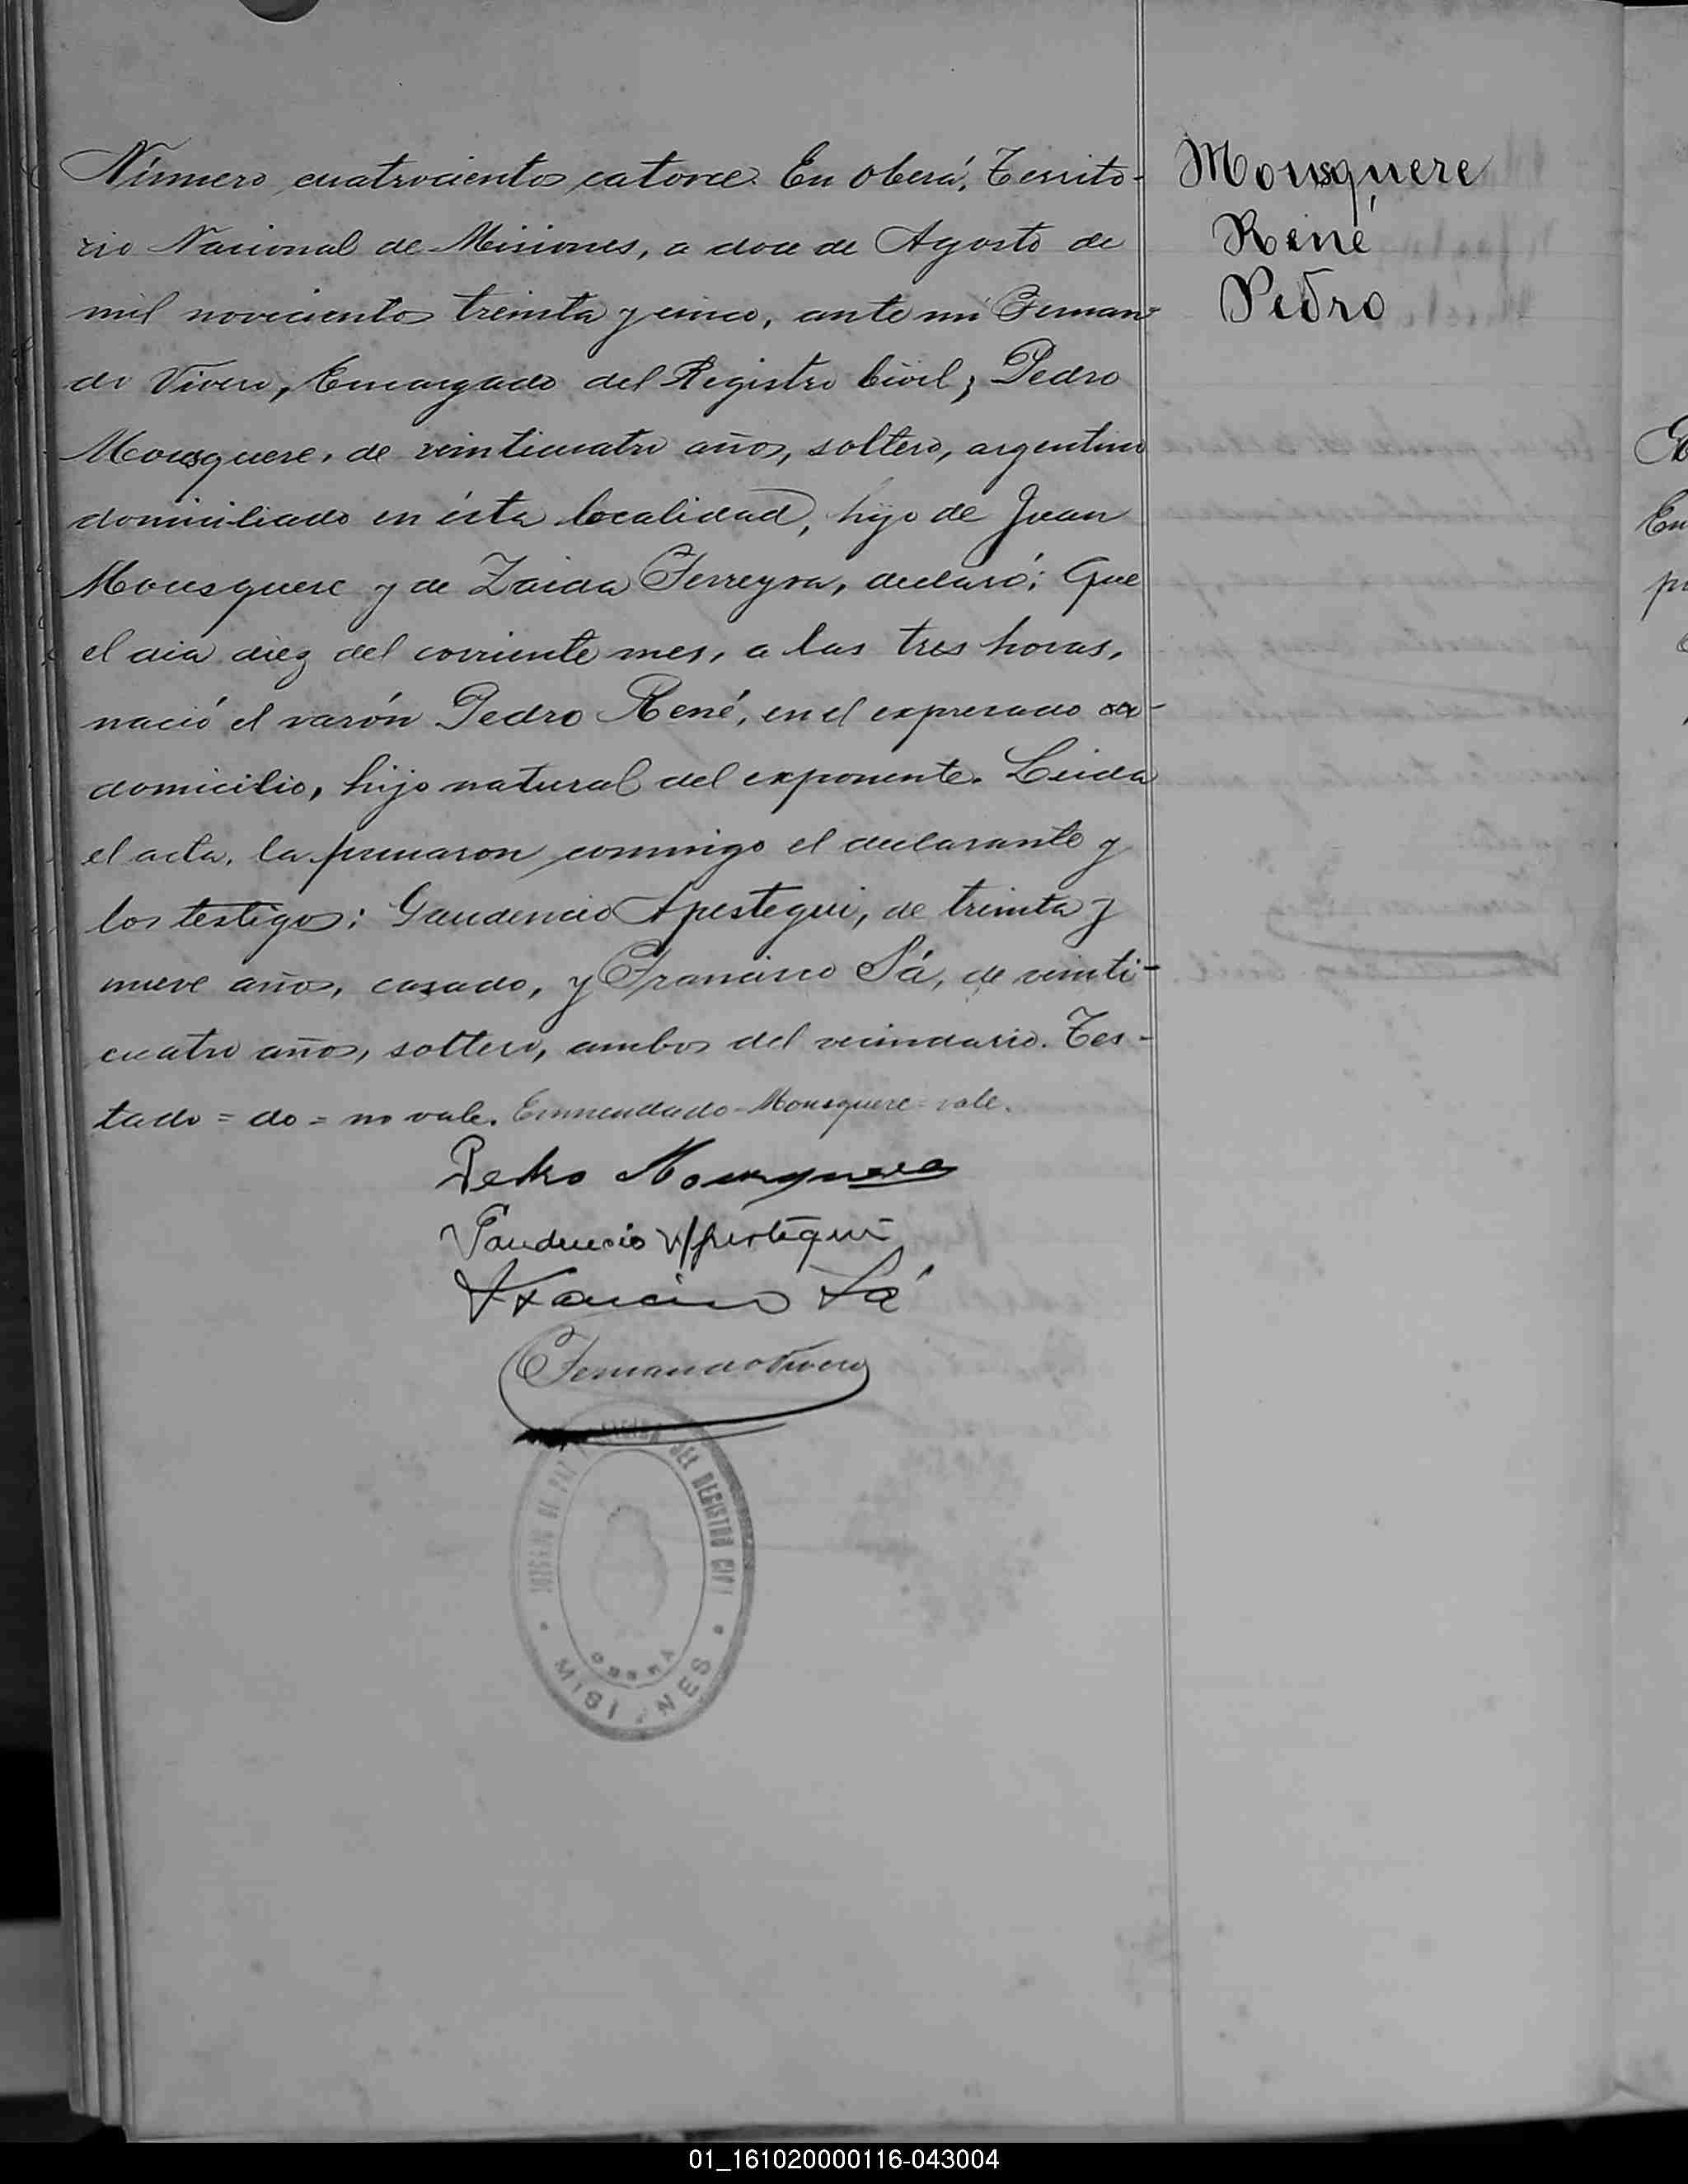 Número cuatrocientos catorce. En Oberá, Territo-
rio Nacional de Misiones, a doce de Agosto de
mil novecientos treinta y cinco, ante mí Fernan-
do Vivero, Encargado del Registro Civil; Pedro
Mousquere, de veinticuatro años, soltero, argentino
domiciliado en ésta localidad, hijo de Juan
Mousquere y de Zaida Ferreyra, declaró: Que
el día diez del corriente mes, a las tres horas,
nació el varón Pedro René, en el expresado do-
domicilio, hijo natural del exponente. Leida
el acta, la firmaron conmigo el declarante y
los testigos: Gaudencio Apestegui, de treinta y
nueve años, casado, y Francisco Sá, de veinti-
cuatro años, soltero, ambos del vecindario. Tes-
tado = do = no vale. Enmendado = Mousquere = vale.
Pedro Mousquere
Gaudencio Apestegui
Francisco Sá
Fernando Vivero
JUZGADO DE PAZ DEL REGISTRO CIVIL
OBERÁ
MISIONES
Mousquere
René
Pedro
En
01_161020000116-043004